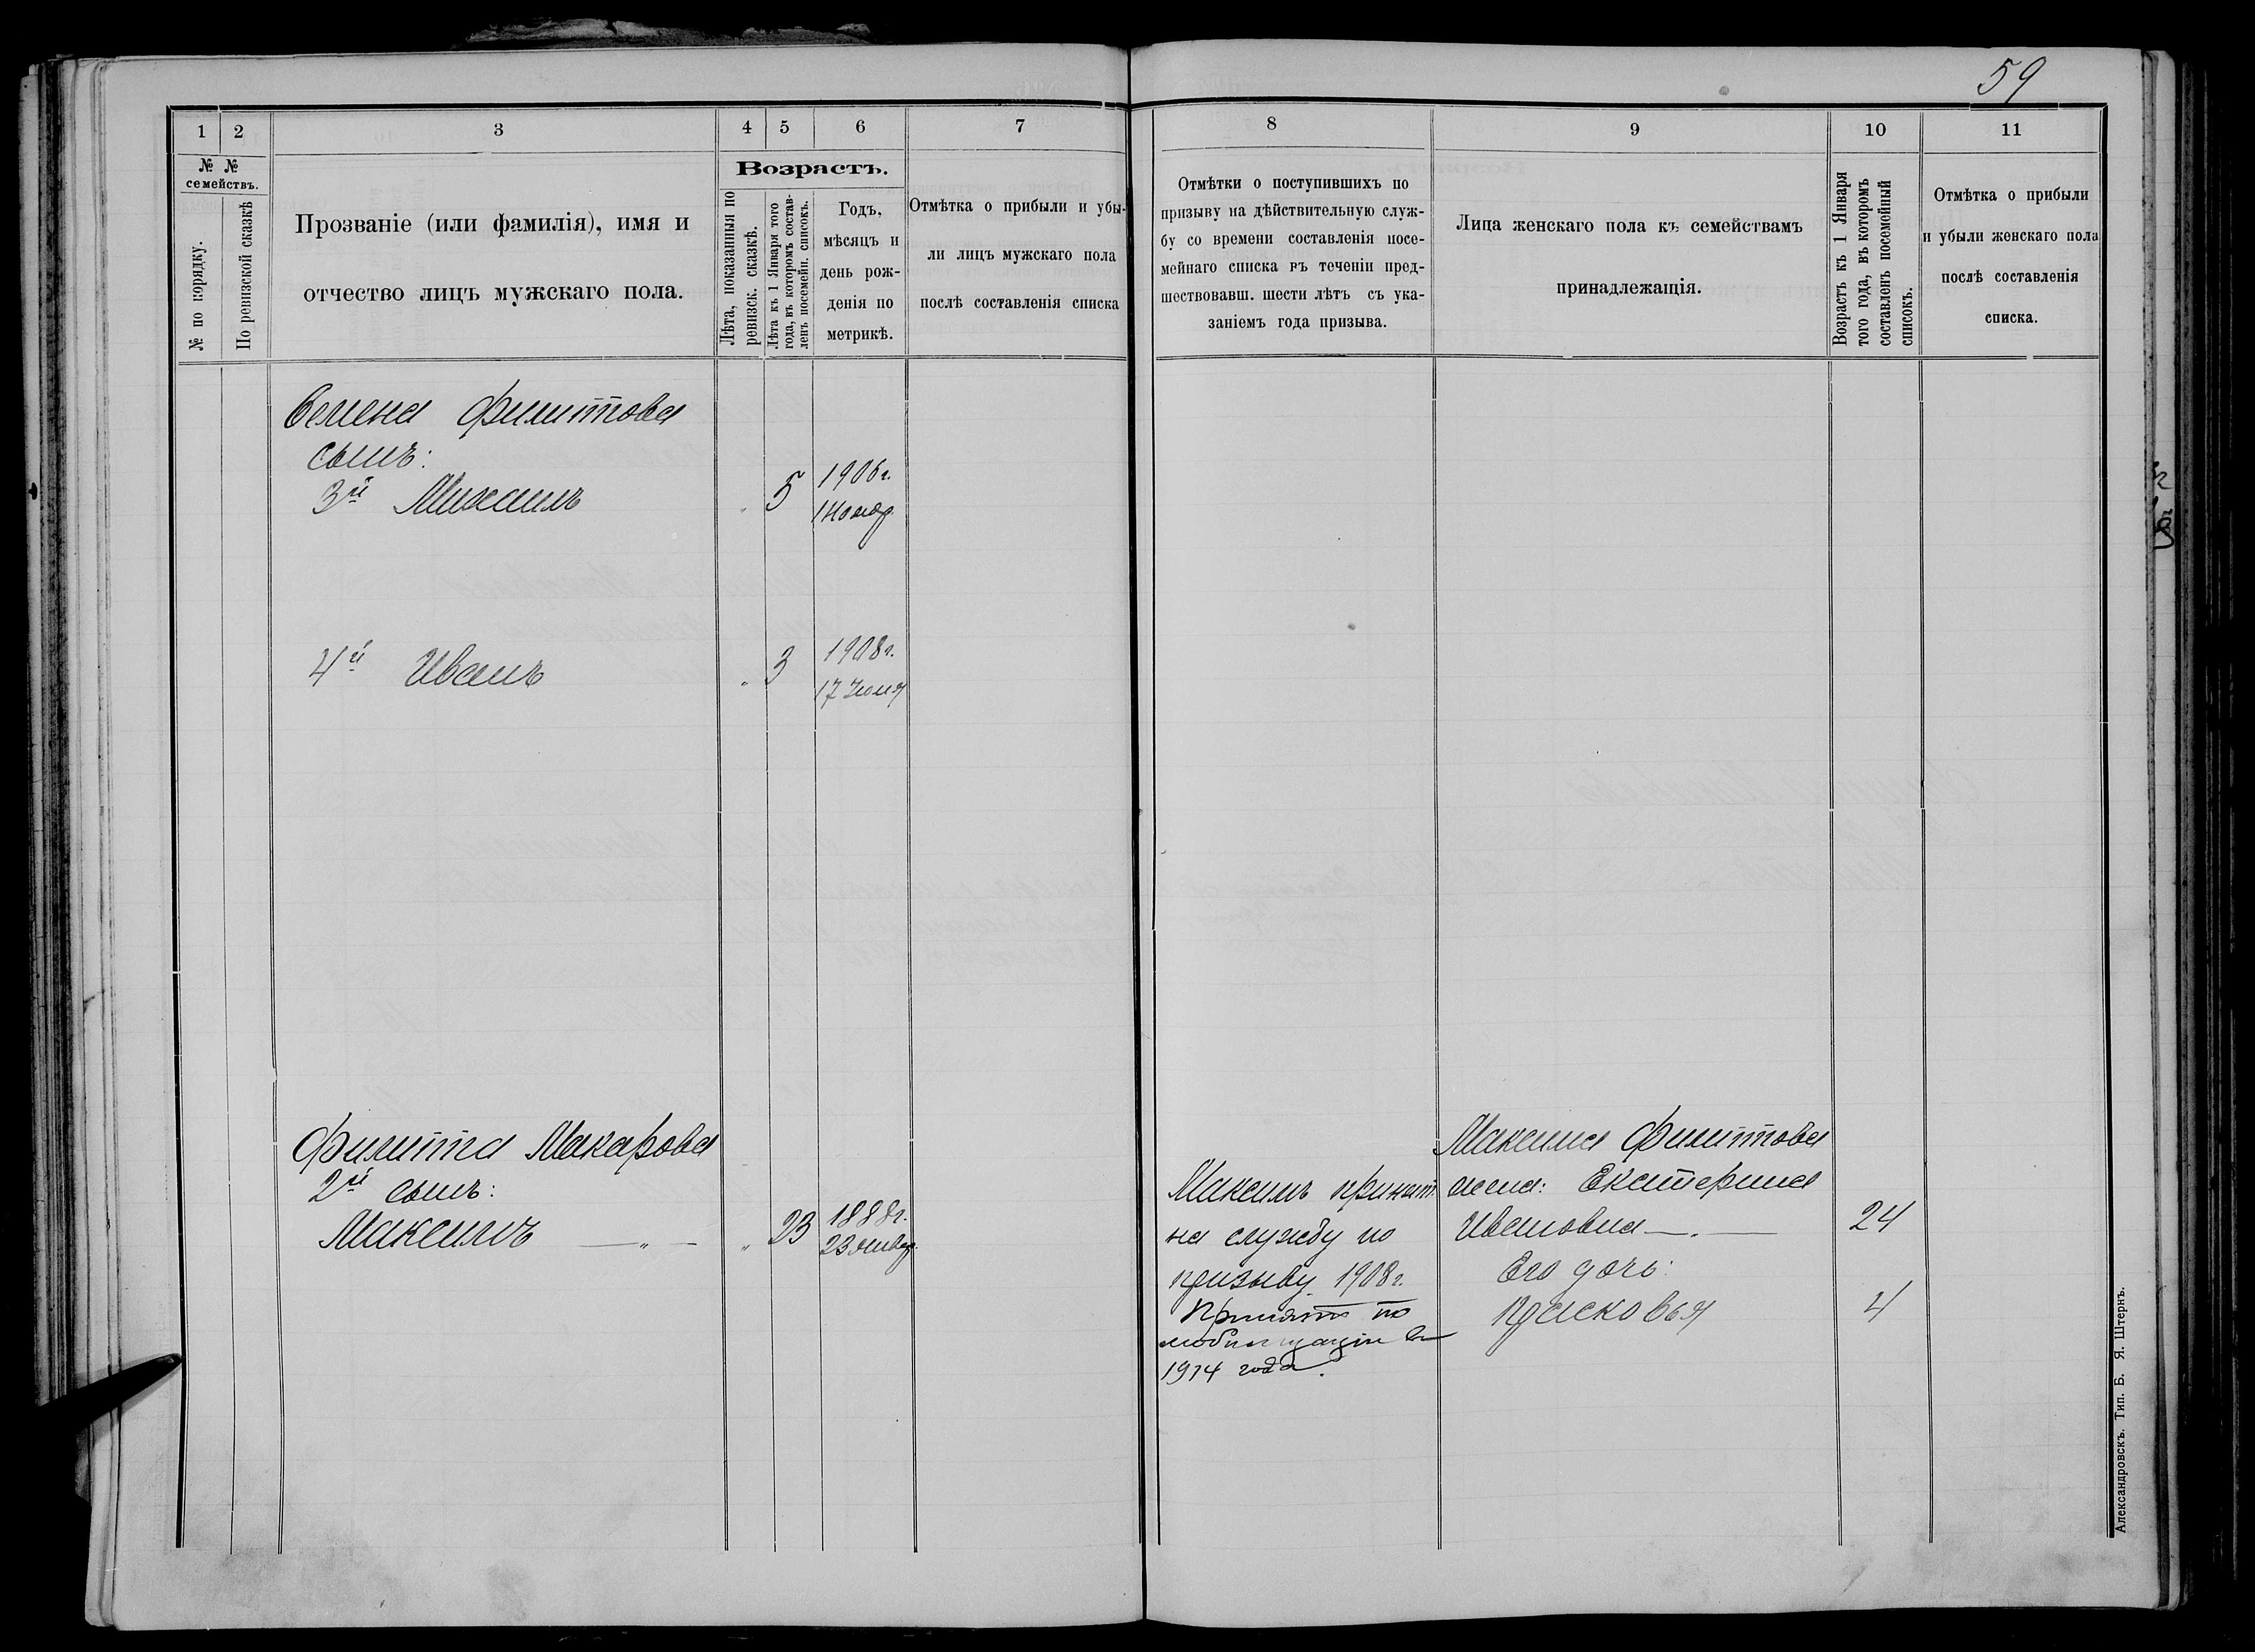 59
1 2 3 4 5 6 7 8 9 10 11
№ №
семействъ.
№ по порядку.
По ревизской сказкѣ
Прозваніе (или фамилія), имя и
отчество лицъ мужскаго пола.
Возрастъ.
Лѣта, показанныя по
ревизск. сказкѣ.
Лѣта къ 1 Января того
года, въ которомъ состав-
ленъ посемейн. списокъ.
Годъ,
мѣсяцъ и
день рож-
денія по
метрикѣ.
Отмѣтка о прибыли и убы-
ли лицъ мужскаго пола
послѣ составленія списка
Отмѣтки о поступившихъ по
призыву на дѣйствительную служ-
бу со времени составленія посе-
мейнаго списка въ теченіи пред-
шествовавш. шести лѣтъ съ ука-
заніемъ года призыва.
Лица женскаго пола къ семействамъ
принадлежащія.
Возрастъ къ 1 Января
того года, въ которомъ
составленъ посемейный
списокъ.
Отмѣтка о прибыли
и убыли женскаго пола
послѣ составленія
списка.
Семена Филиппова
сынъ:
3й Михаилъ 5 1906г.
1 Нояб.
4й Иванъ „ 3 1908г.
17 Іюня
Филиппа Макарова
2й сынъ:
Максимъ — „ — „ 23 1888г.
23 Январ.
Максимъ принят
на службу по
призыву 1908г.
Принятъ по
мобилизаціи въ
1914 года.
Максима Филиппова
жена: Екатерина
Ивановна — 24
Его дочь:
Прасковья 4
Александровскъ. Тип. Б. Я. Штернъ.